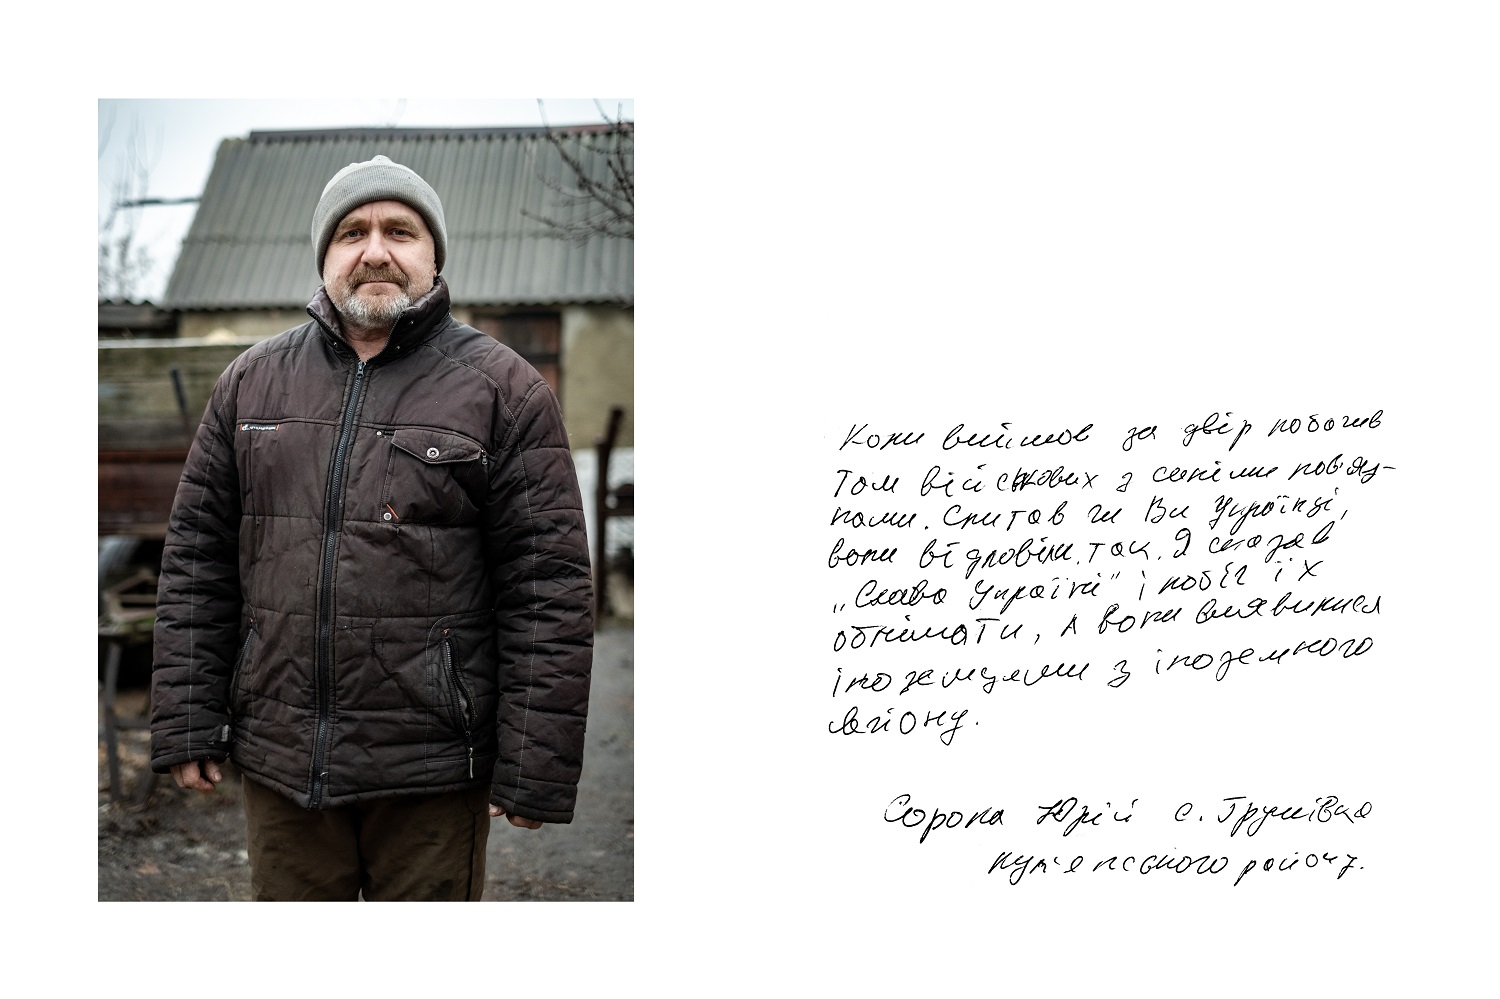 Коли вийшов за двір побачив
там військових з синіми пов'яз-
ками. Спитав чи Ви Українці,
вони відповіли так. Я сказав
„Слава Україні" і побіг їх
обнімати, А вони виявилися
іноземцями з іноземного
легіону.
Сорока Юрій с. Грушівка
куп'янського району.